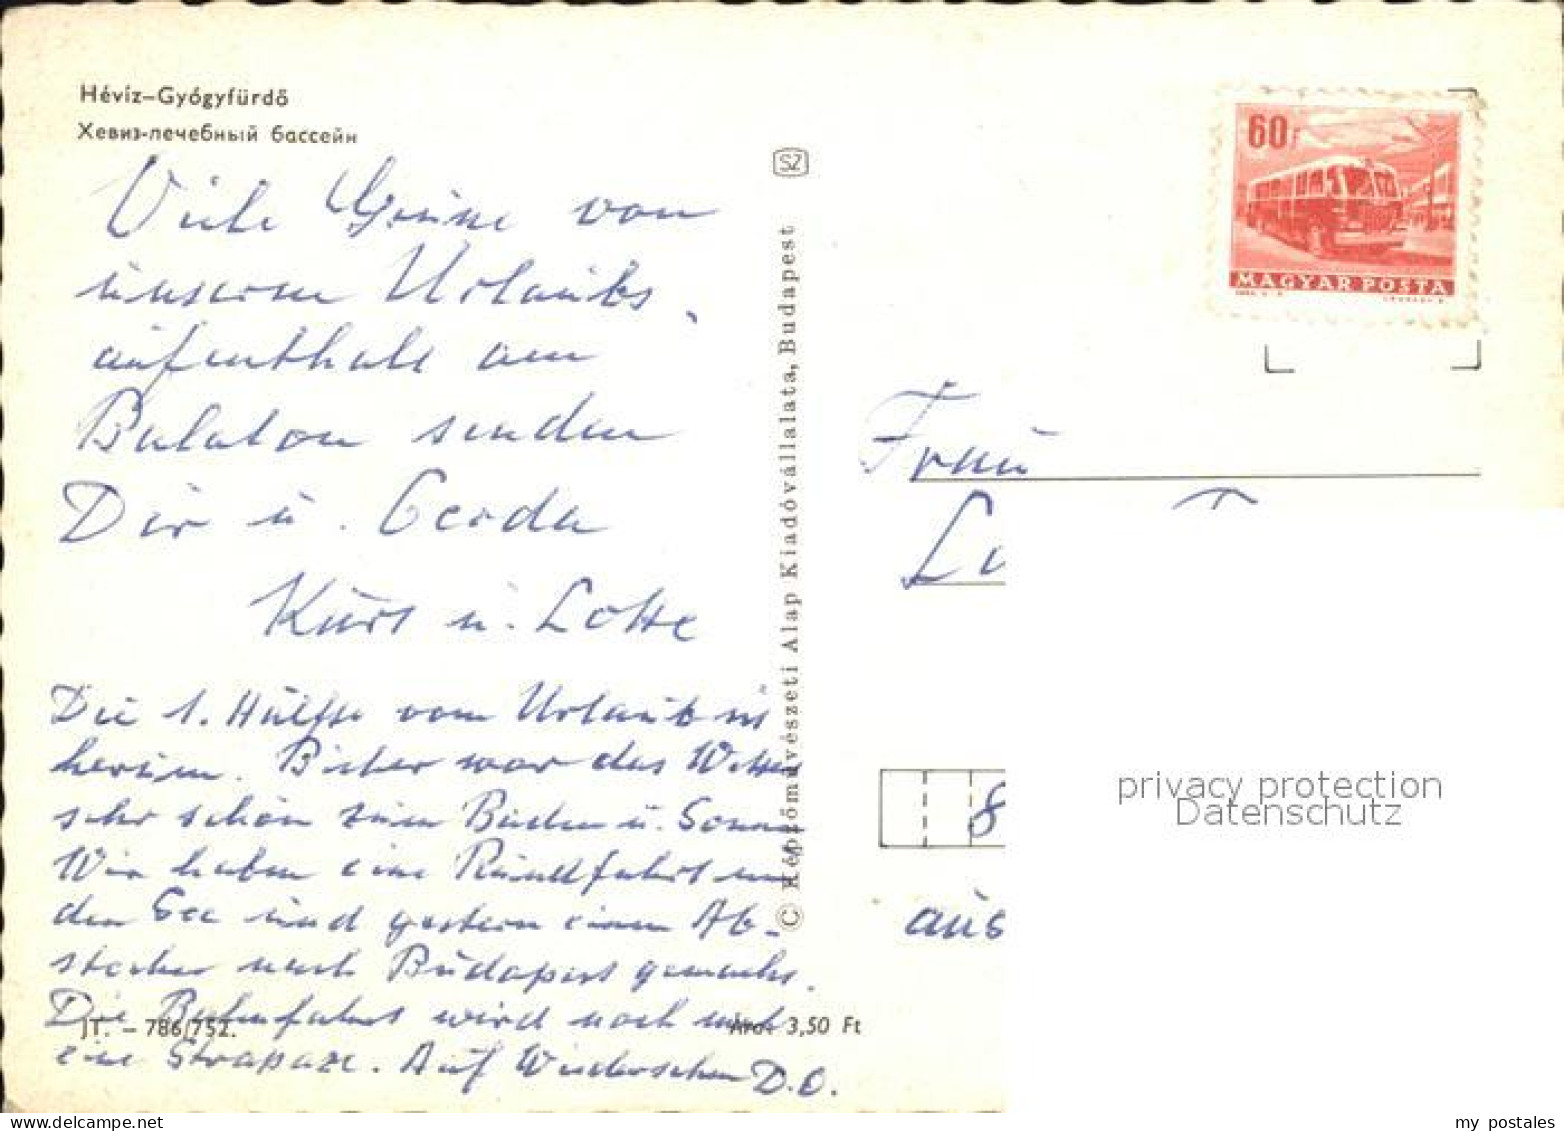 Hévíz–Gyógyfürdő
Хевиз-лечебный бассейн
Viele Grüsse von
unserem Urlaubs-
aufenthalt am
Balaton senden
Dir u. Gerda
Kurt u. Lotte
Die 1. Hälfte vom Urlaub ist
herum. Bisher war das Wetter
sehr schön zum Baden u. Sonnen
Wir haben eine Rundfahrt um
den See und gestern einen Ab-
stecher nach Budapest gemacht.
Die Bahnfahrt wird noch mal
eine Strapaze. Auf Wiedersehen D.O.
JT. – 786/752.
Ára: 3,50 Ft
SZ
© Képzőművészeti Alap Kiadóvállalata, Budapest
60f
MAGYAR POSTA
Frau
8
privacy protection
Datenschutz
my_postales